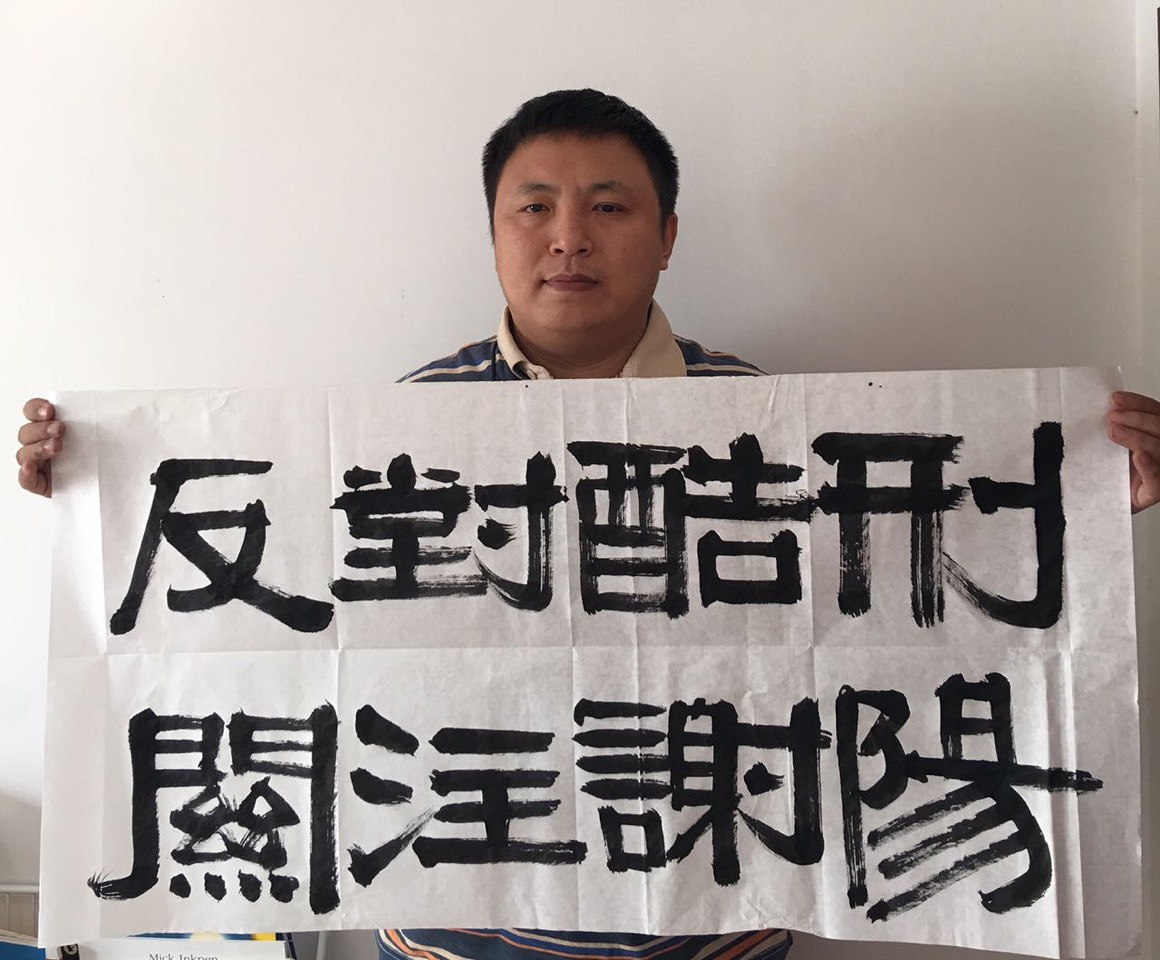 反對酷刑
關注謝陽
Mick Inkpen